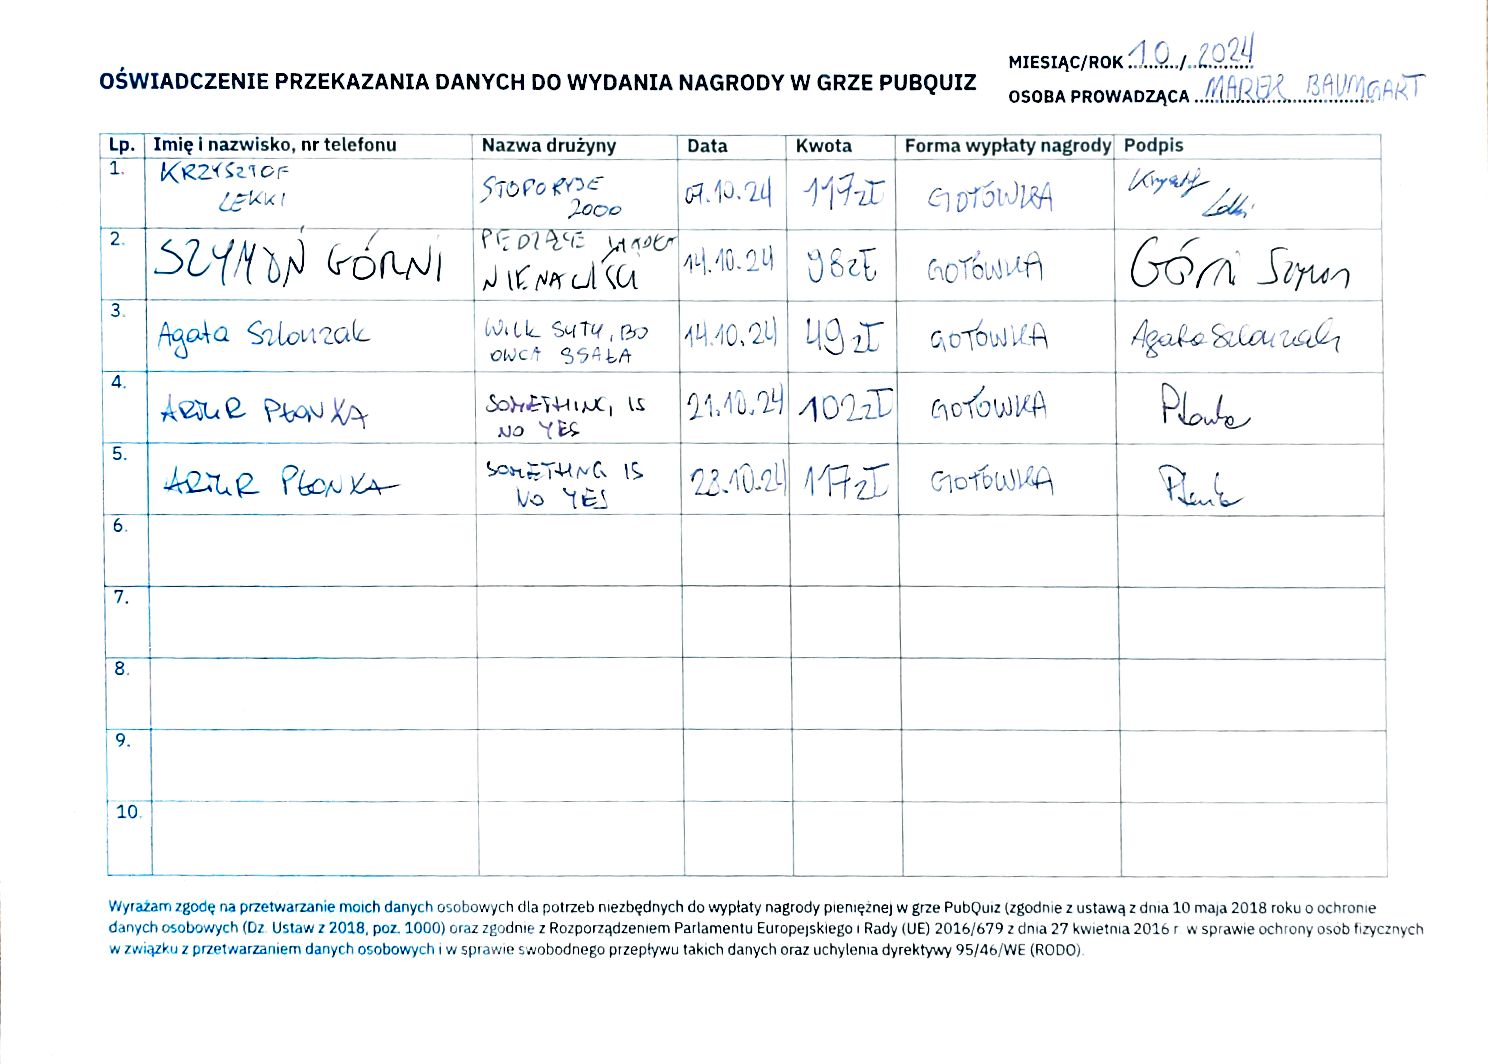 MIESIĄC/ROK 10/2024
OŚWIADCZENIE PRZEKAZANIA DANYCH DO WYDANIA NAGRODY W GRZE PUBQUIZ
OSOBA PROWADZĄCA MAREK BAUMGART
Lp. Imię i nazwisko, nr telefonu Nazwa drużyny Data Kwota Forma wypłaty nagrody Podpis
1. KRZYSZTOF
LEKKI
STOPORYDE
2000
07.10.24 117zł GOTÓWKA
2. SZYMON GÓRNI
PĘDZĄCE
NIENAWIŚCI
14.10.24 98zł GOTÓWKA GÓRNI Szymon
3. Agata Szlonzak
WILK SYTY, BO
OWCA SSAŁA
14.10.24 49zł GOTÓWKA Agata Szlonzak
4. ARTUR PŁONKA
SOMETHING IS
NO YES
21.10.24 102zł GOTÓWKA Płonka
5. ARTUR PŁONKA
SOMETHING IS
NO YES
28.10.24 117zł GOTÓWKA
6.
7.
8.
9.
10.
Wyrażam zgodę na przetwarzanie moich danych osobowych dla potrzeb niezbędnych do wypłaty nagrody pieniężnej w grze PubQuiz (zgodnie z ustawą z dnia 10 maja 2018 roku o ochronie
danych osobowych (Dz. Ustaw z 2018, poz. 1000) oraz zgodnie z Rozporządzeniem Parlamentu Europejskiego i Rady (UE) 2016/679 z dnia 27 kwietnia 2016 r w sprawie ochrony osób fizycznych
w związku z przetwarzaniem danych osobowych i w sprawie swobodnego przepływu takich danych oraz uchylenia dyrektywy 95/46/WE (RODO).